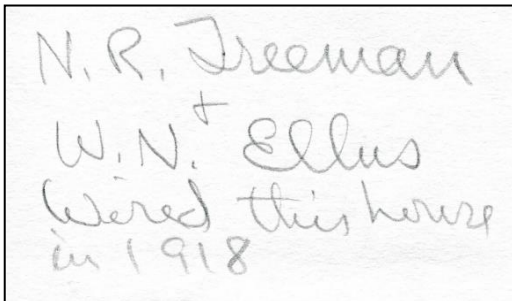 N.R. Freeman
+
W.N. Ellis
Wired this house
in 1918